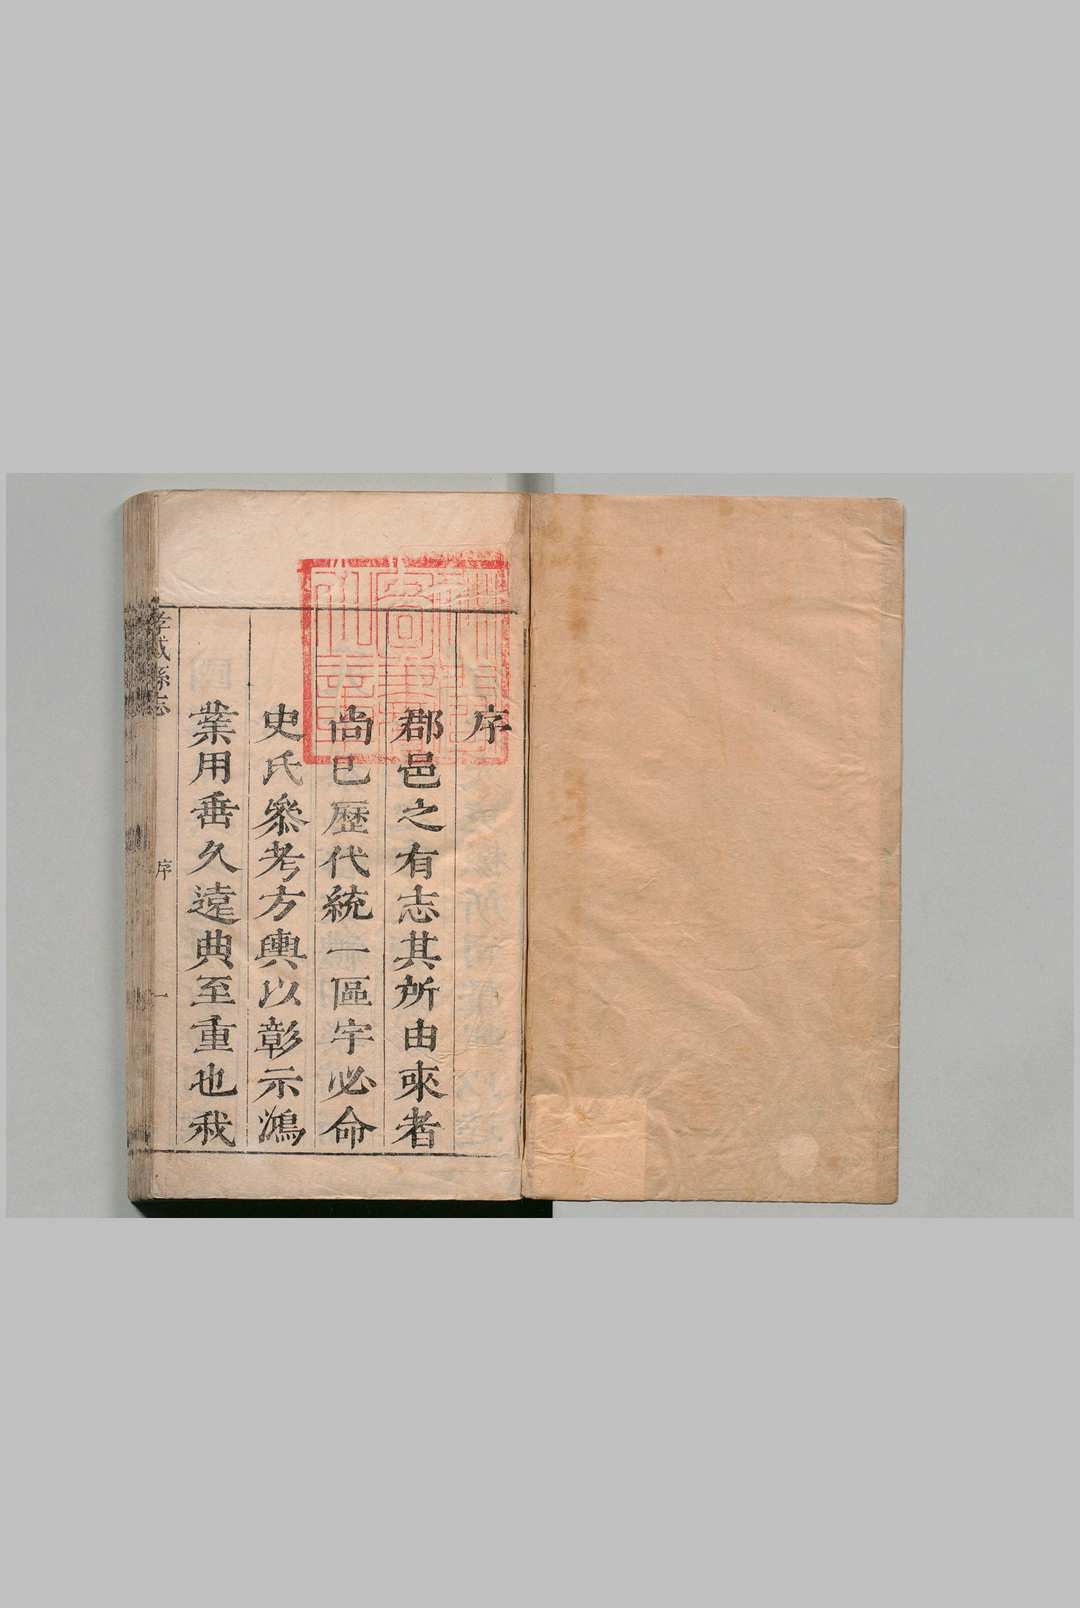 序
郡邑之有志其所由來者
尚已歷代統一區宇必命
史氏參考方輿以彰示鴻
業用垂久遠典至重也我
縣志
序
一